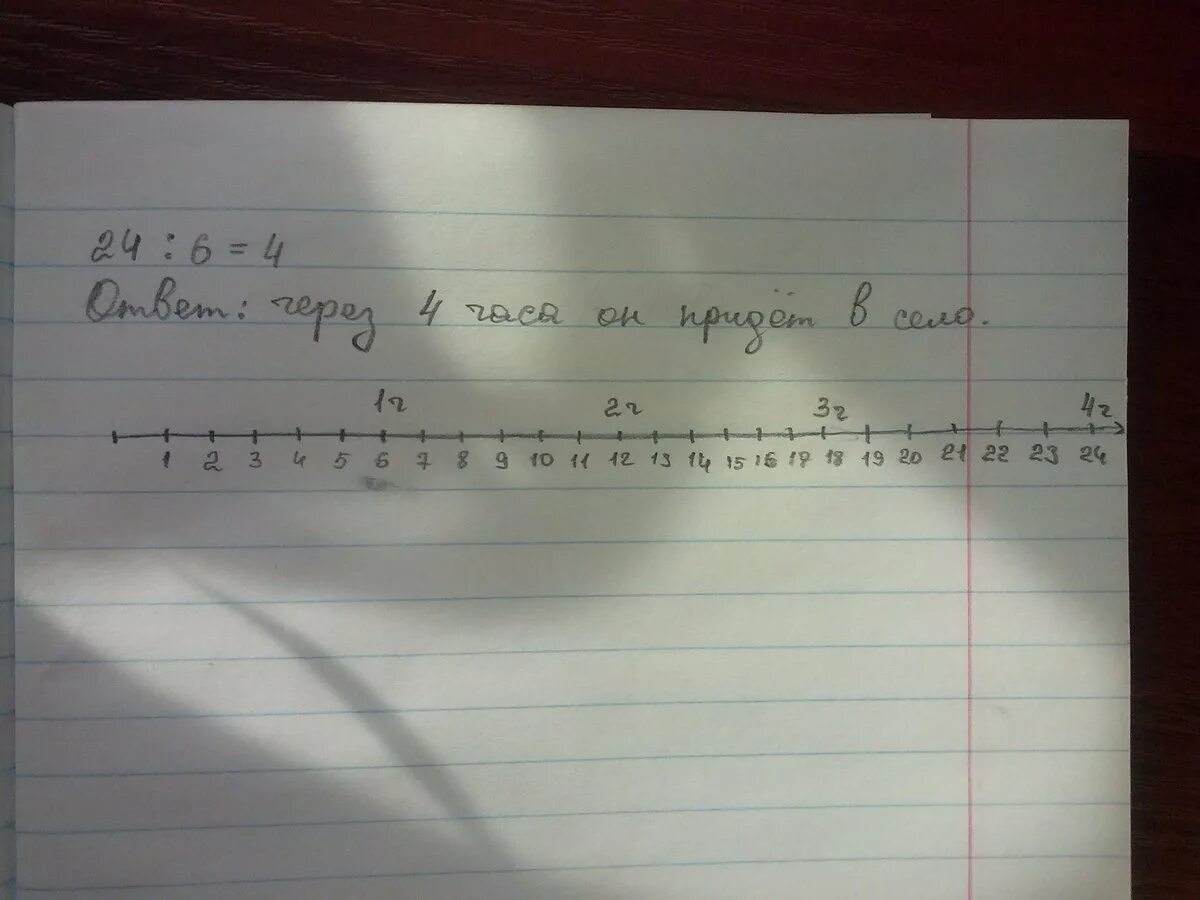 24 : 6 = 4
Ответ: через 4 часа он придёт в село.
1ч 2ч 3ч 4ч
1 2 3 4 5 6 7 8 9 10 11 12 13 14 15 16 17 18 19 20 21 22 23 24